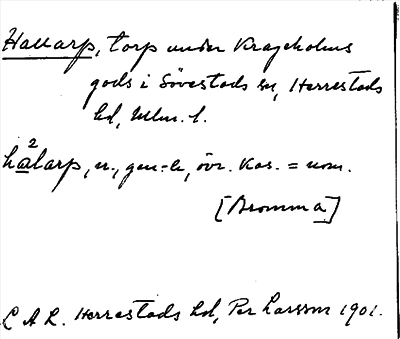 Hallarp, torp under Krageholms
gods i Sövestads sn, Herrestads
hd, Mlm. l.
ha²larp, n., gen. -s, övr. kas. = nom.
[Bromma]
C A L. Herrestads hd, Per Larsson 1901.